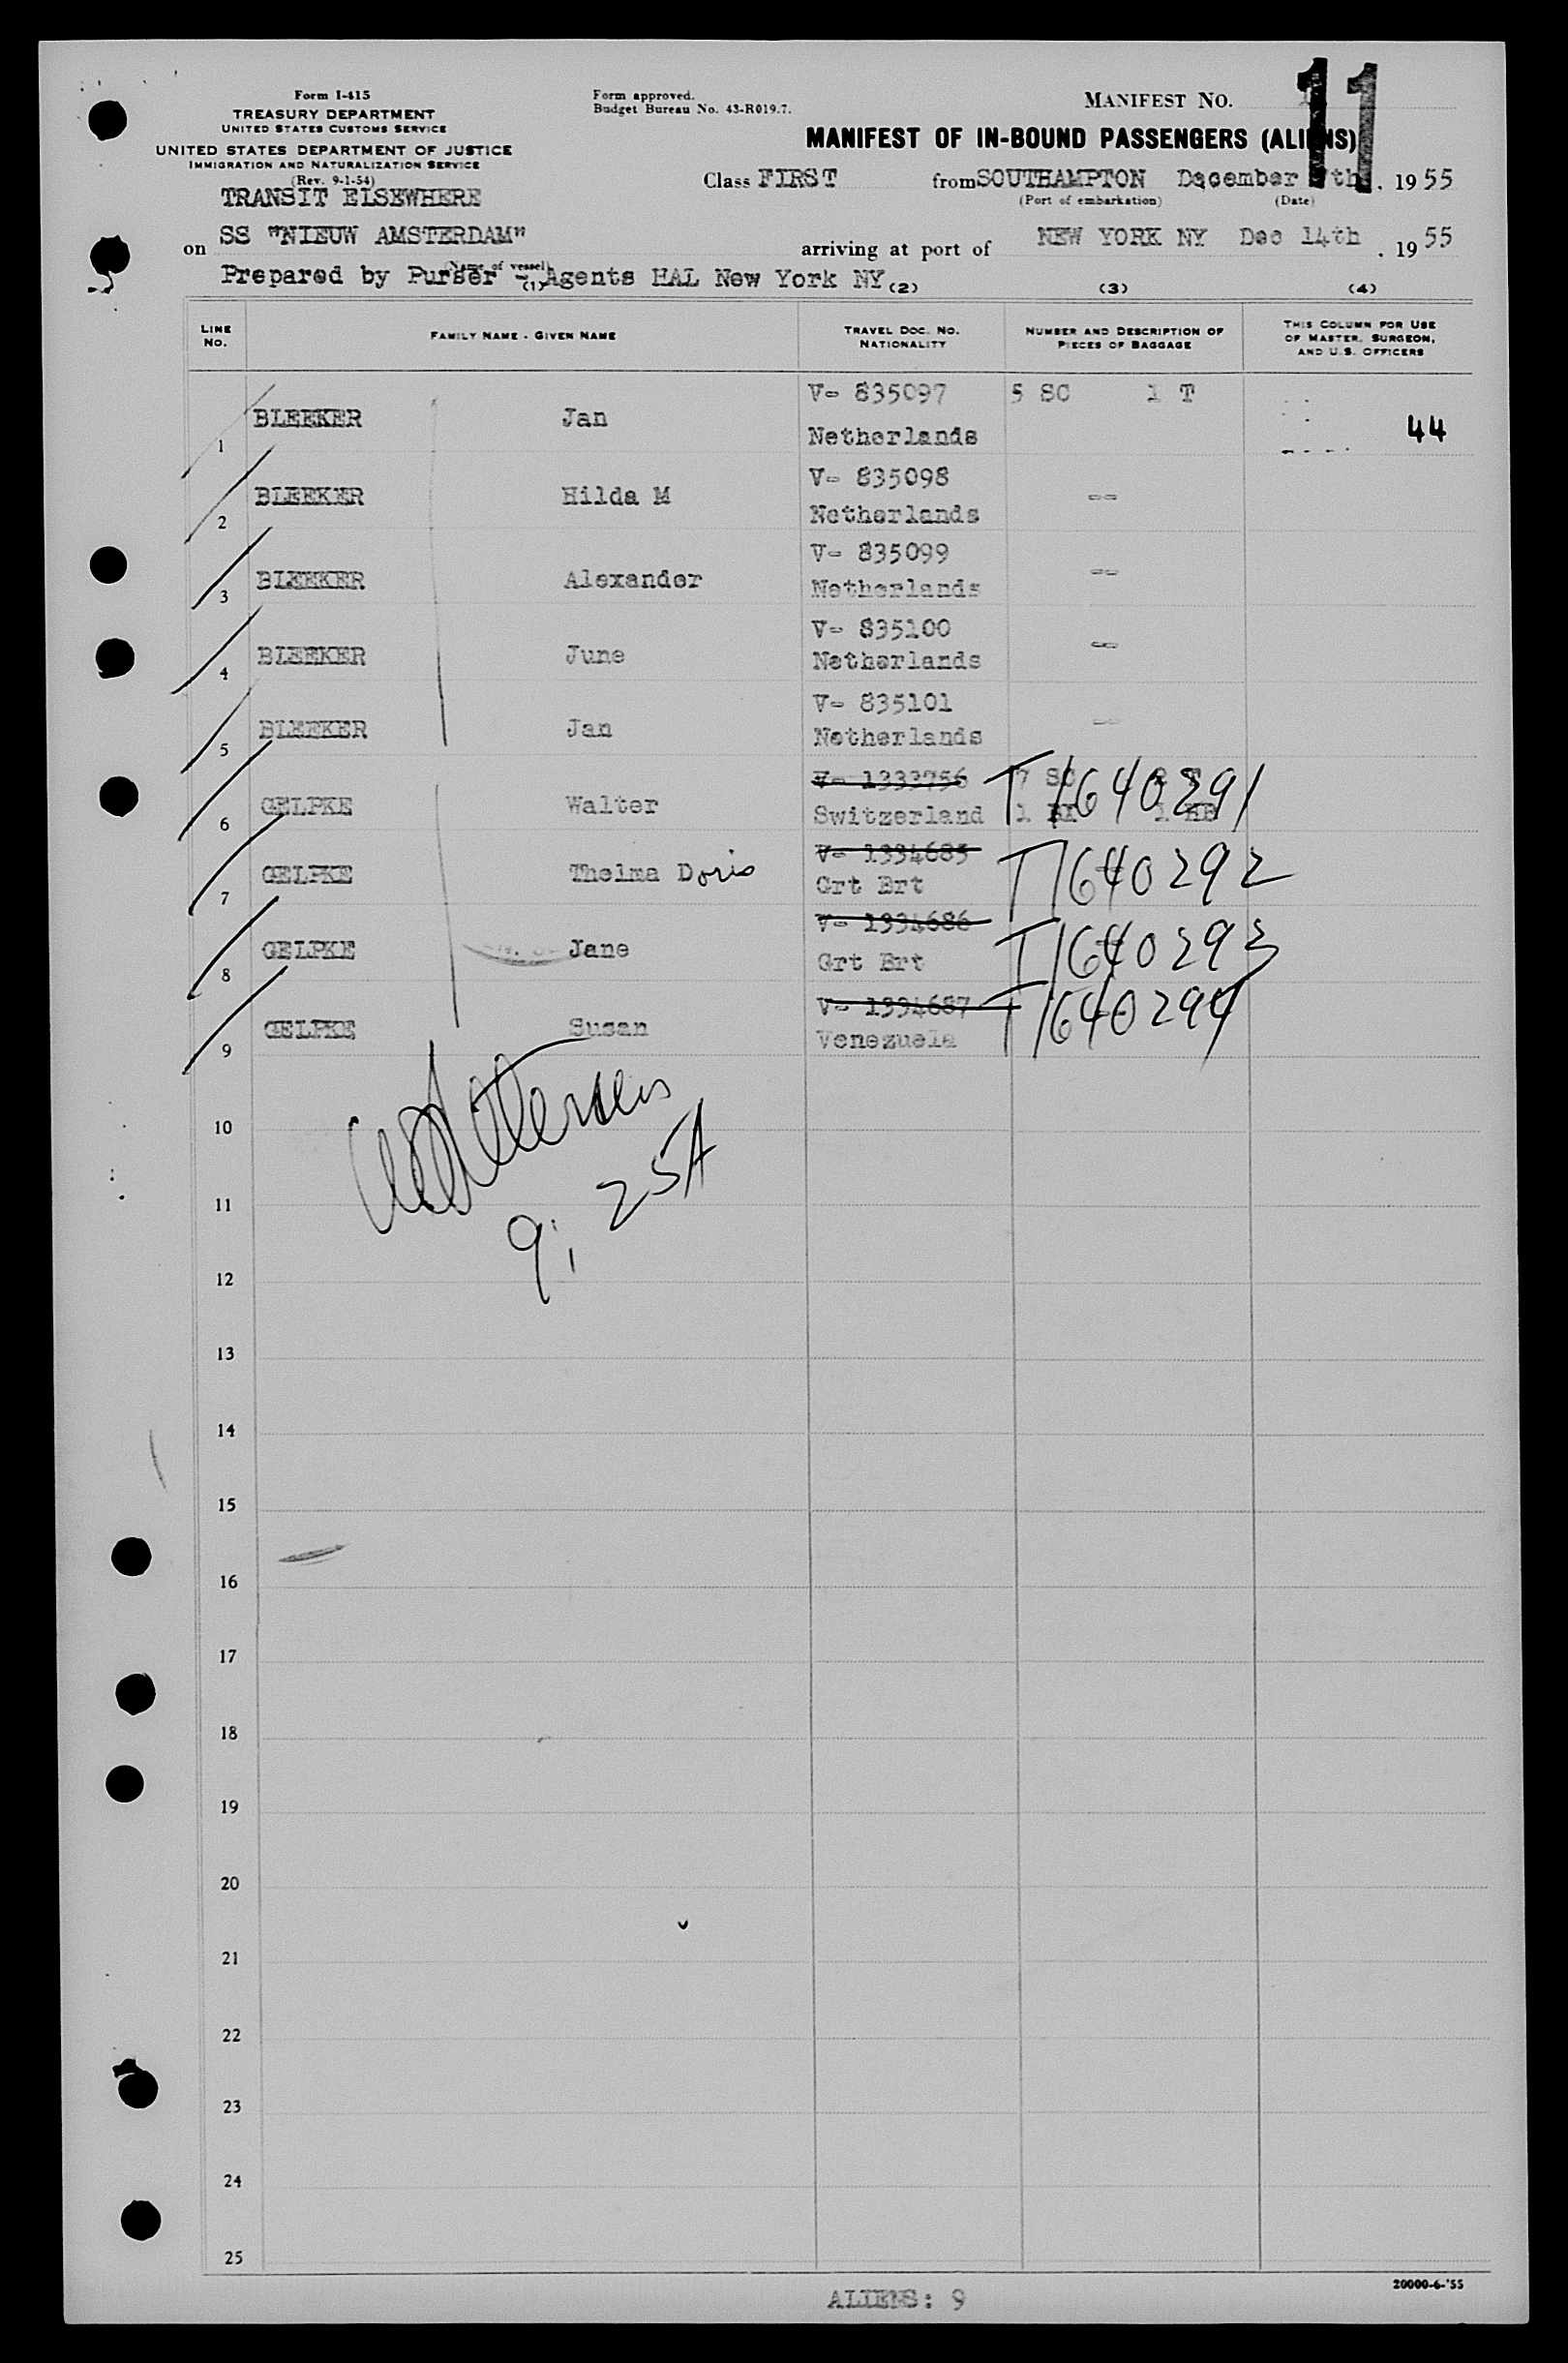 Form I-415
TREASURY DEPARTMENT
UNITED STATES CUSTOMS SERVICE
UNITED STATES DEPARTMENT OF JUSTICE
IMMIGRATION AND NATURALIZATION SERVICE
(Rev. 9-1-54)
Form approved.
Budget Bureau No. 43-R019.7.
MANIFEST NO. 11
MANIFEST OF IN-BOUND PASSENGERS (ALIENS)
TRANSIT ELSEWHERE
Class FIRST from SOUTHAMPTON December th, 1955
(Port of embarkation) (Date)
on SS "NIEUW AMSTERDAM" arriving at port of NEW YORK NY Dec 14th, 1955
(Name of vessel)
Prepared by Purser - Agents HAL New York NY
(1) (2) (3) (4)
LINE NO. FAMILY NAME - GIVEN NAME TRAVEL DOC. NO. NATIONALITY NUMBER AND DESCRIPTION OF PIECES OF BAGGAGE THIS COLUMN FOR USE OF MASTER, SURGEON, AND U.S. OFFICERS
V- 835097 5 SC 1 T
1 BLEEKER Jan Netherlands 44
V- 835098
2 BLEEKER Hilda M Netherlands --
V- 835099
3 BLEEKER Alexander Netherlands --
V- 835100
4 BLEEKER June Netherlands --
V- 835101
5 BLEEKER Jan Netherlands --
V- 1333756 7 SC T1640291
6 GELPKE Walter Switzerland 1 1
V- 1334685 T1640292
7 GELPKE Thelma Doris Grt Brt
V- 1334686 T1640293
8 GELPKE Jane Grt Brt
V- 1334687 T1640294
9 GELPKE Susan Venezuela
10
9; 25A
11
12
13
14
15
16
17
18
19
20
21
22
23
24
25
20000-6-'55
ALIENS: 9